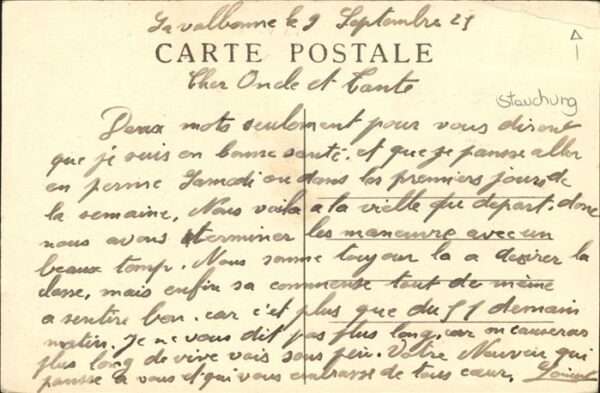 La valbonne le 9 Septembre 29
CARTE POSTALE
Cher Oncle et Tante
Stauchung
Deux mots seulement pour vous disant
que je suis en bonne santé. et que je pansse aller
en perme Samedi ou dans les premiers jours de
la semaine, Nous voila a la vielle du depart. donc
nous avons terminer les manœuvre avec un
beaux temp. Nous somme toujour la a desirer la
classe, mais enfin sa commense tout de même
a sentire bon. car c'et plus que du 51 demain
matin. je ne vous dit pas plus long, car on causeras
plus long de vive vois sous peu. Votre Neuveu qui
pansse a vous et qui vous embrasse de tous cœur,